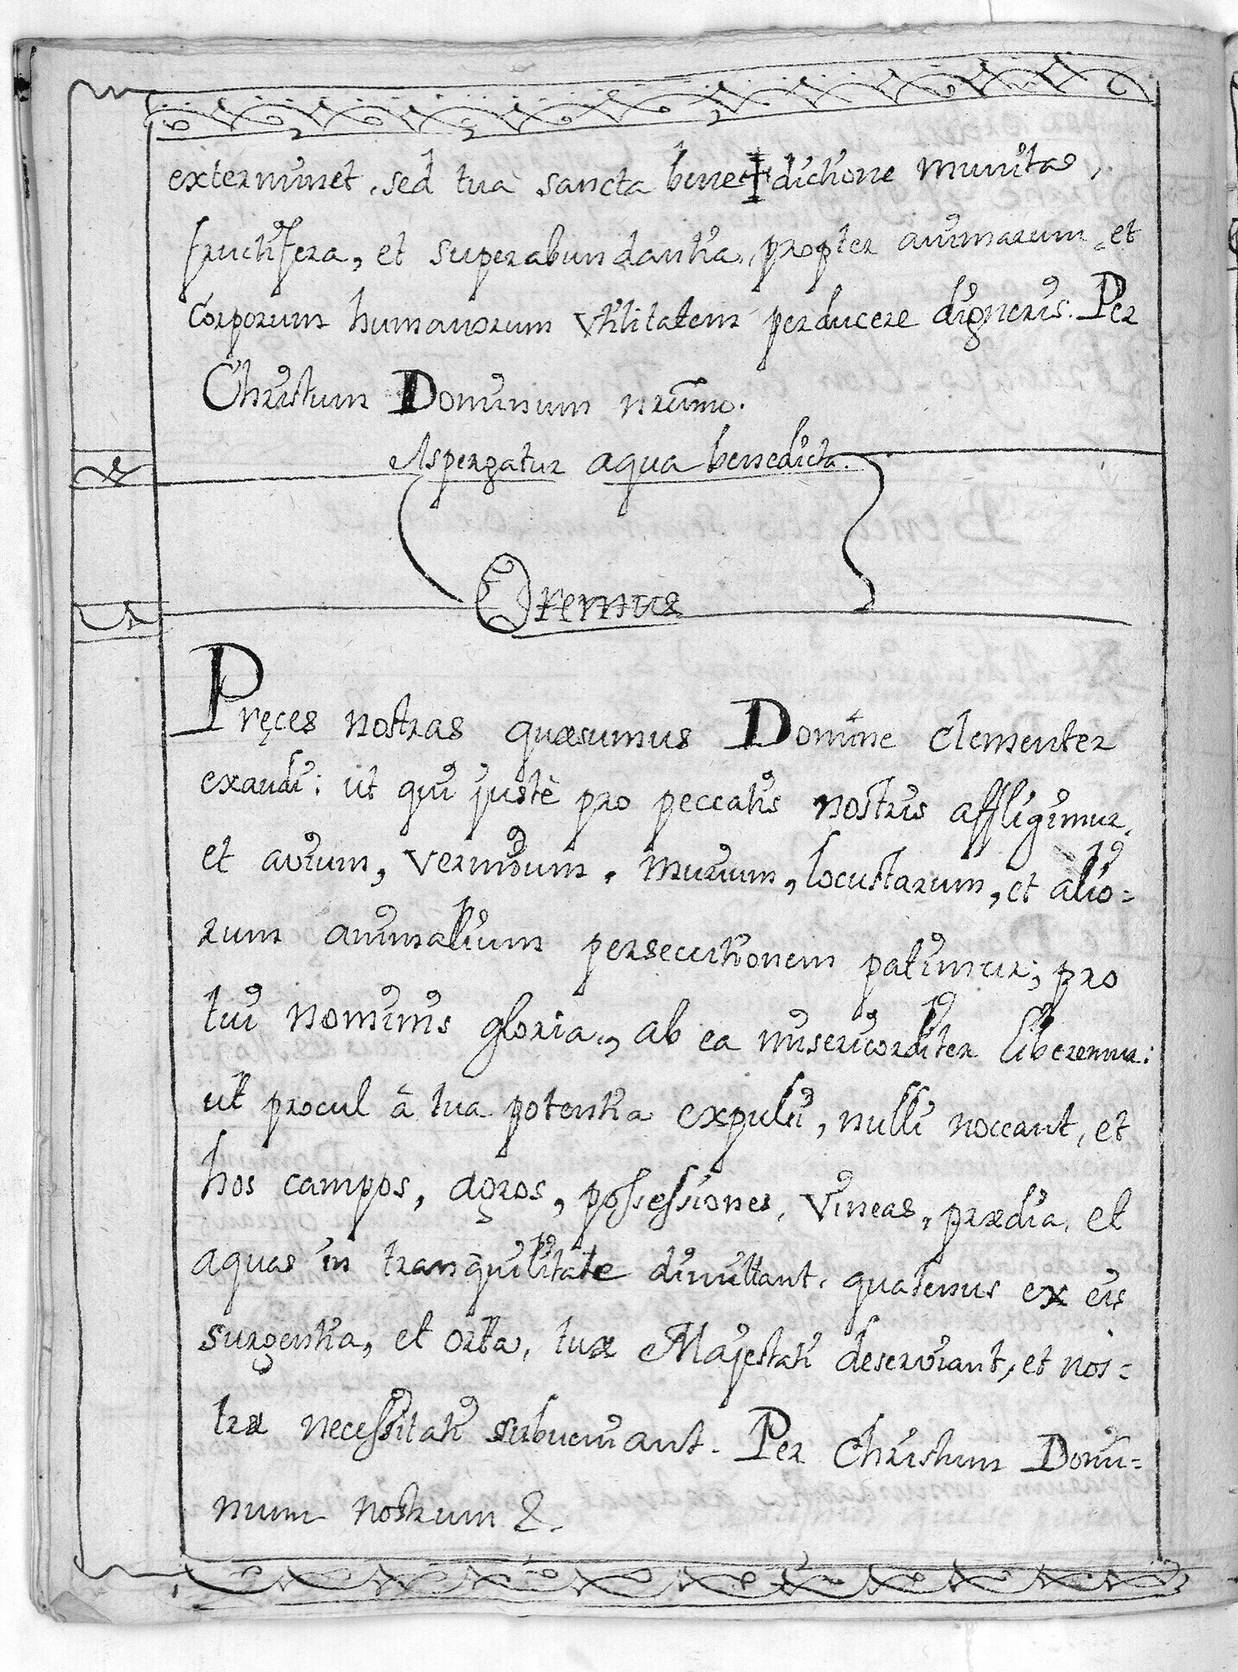 exterminet, sed tua sancta bene✝dictione munita,
fructifera, et superabundantia, propter animarum, et
Corporum humanorum Vtilitatem perducere digneris. Per
Christum Dominum nr̃um.
Aspergatur aqua benedicta.
Oremus
Pręces nostras quæsumus Domine clementer
exaudi: ut qui justè pro peccatis nostris affligimur,
et avium, vermium, murium, locustarum, et alio=
rum animalium persecutionem patimur; pro
tui nominis gloria, ab ea misericorditer liberemur:
ut procul â tua potentia expulsi, nulli noceant, et
hos campos, agros, possessiones, Vineas, prædia, et
aquas in tranquilitate dimittant, quatenus ex eis
surgentia, et orta, tuæ Majestati deserviant, et nos=
træ necessitati subveniant. Per Christum Domi=
num nostrum &.